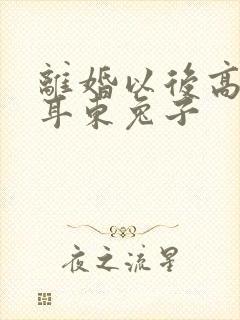 離婚以後高
耳東兔子
夜之流星